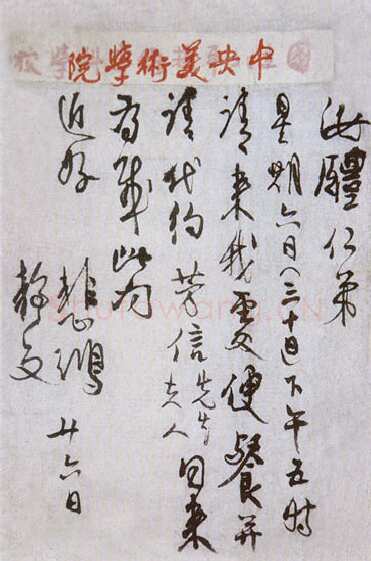 中央美術學院
汝醴仁弟
星期六日(三十日)下午五時
請來我處便餐并
請代約 芳信先生夫人同來
為 此問
近好
悲鴻
靜文
廿六日